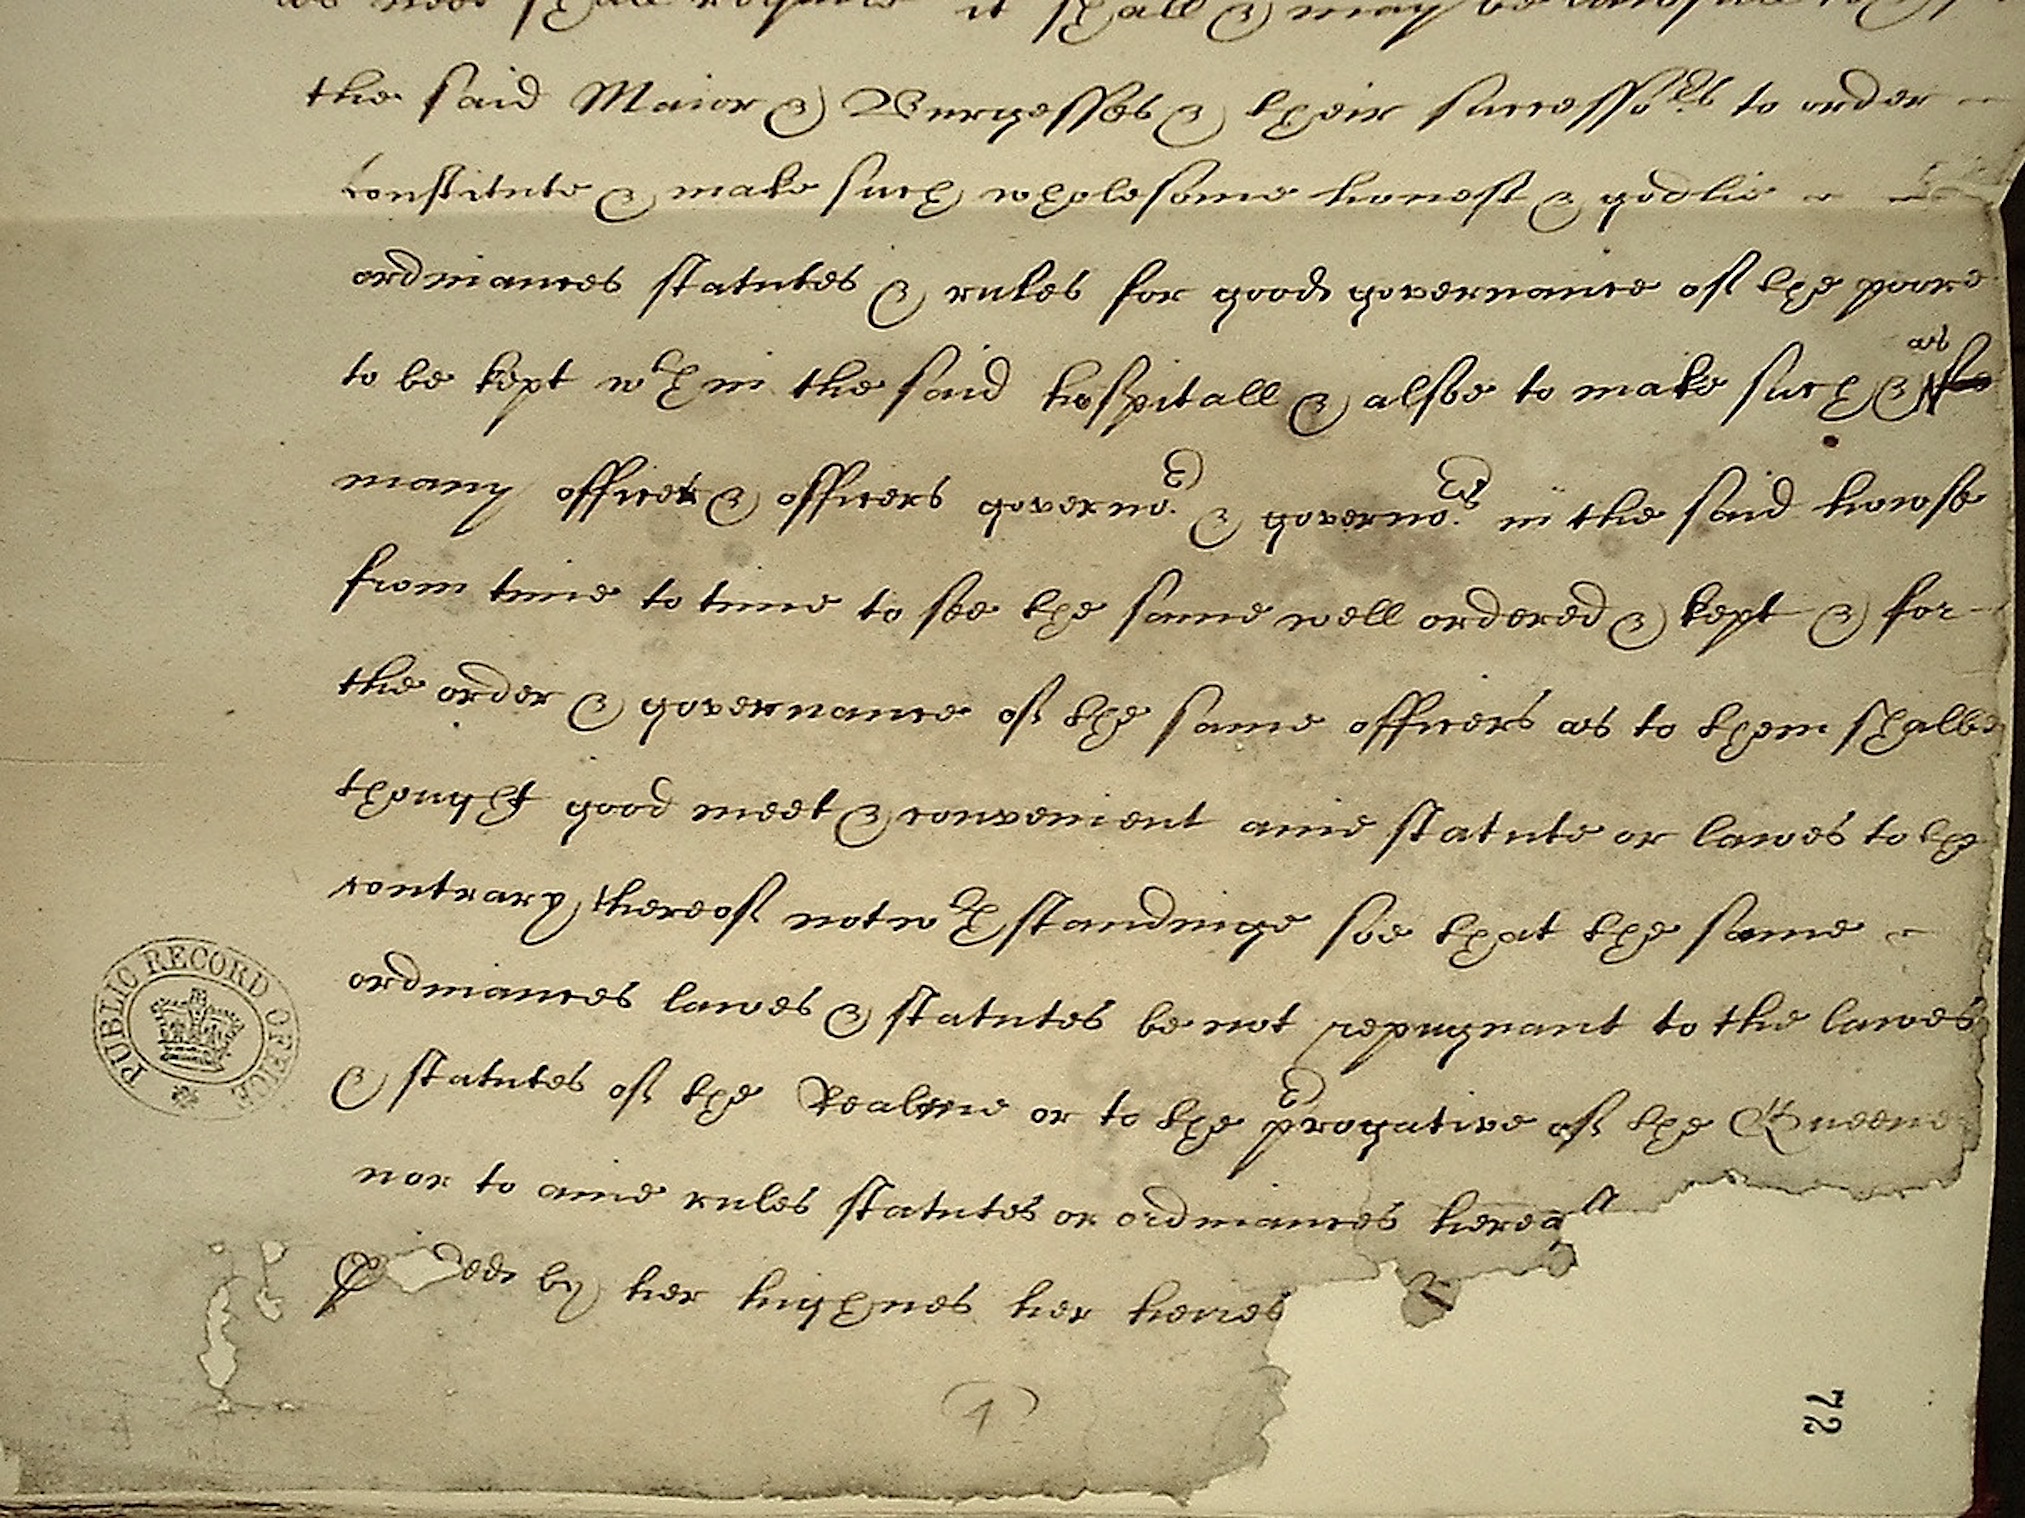 as need shall require it shall & may be lawfull to
the said Maior & Burgesses & their successors to order
constitute & make such wholesome honest & godlie
ordinances statutes & rules for good governance of the poore
to be kept wth in the said hospitall & alsoe to make such & as
many offices & officers governor & governors in the said howse
from time to time to see the same well ordered & kept & for
the order & governance of the same officers as to them shalbe
thought good meet & convenient anie statute or lawes to the
contrary thereof notwthstandinge soe that the same
ordinances lawes & statutes be not repugnant to the lawes
& statutes of the Realme or to the progative of the Queene
nor to anie rules statutes or ordinances hereaft
by her highnes her heires
PUBLIC RECORD OFFICE
1
72